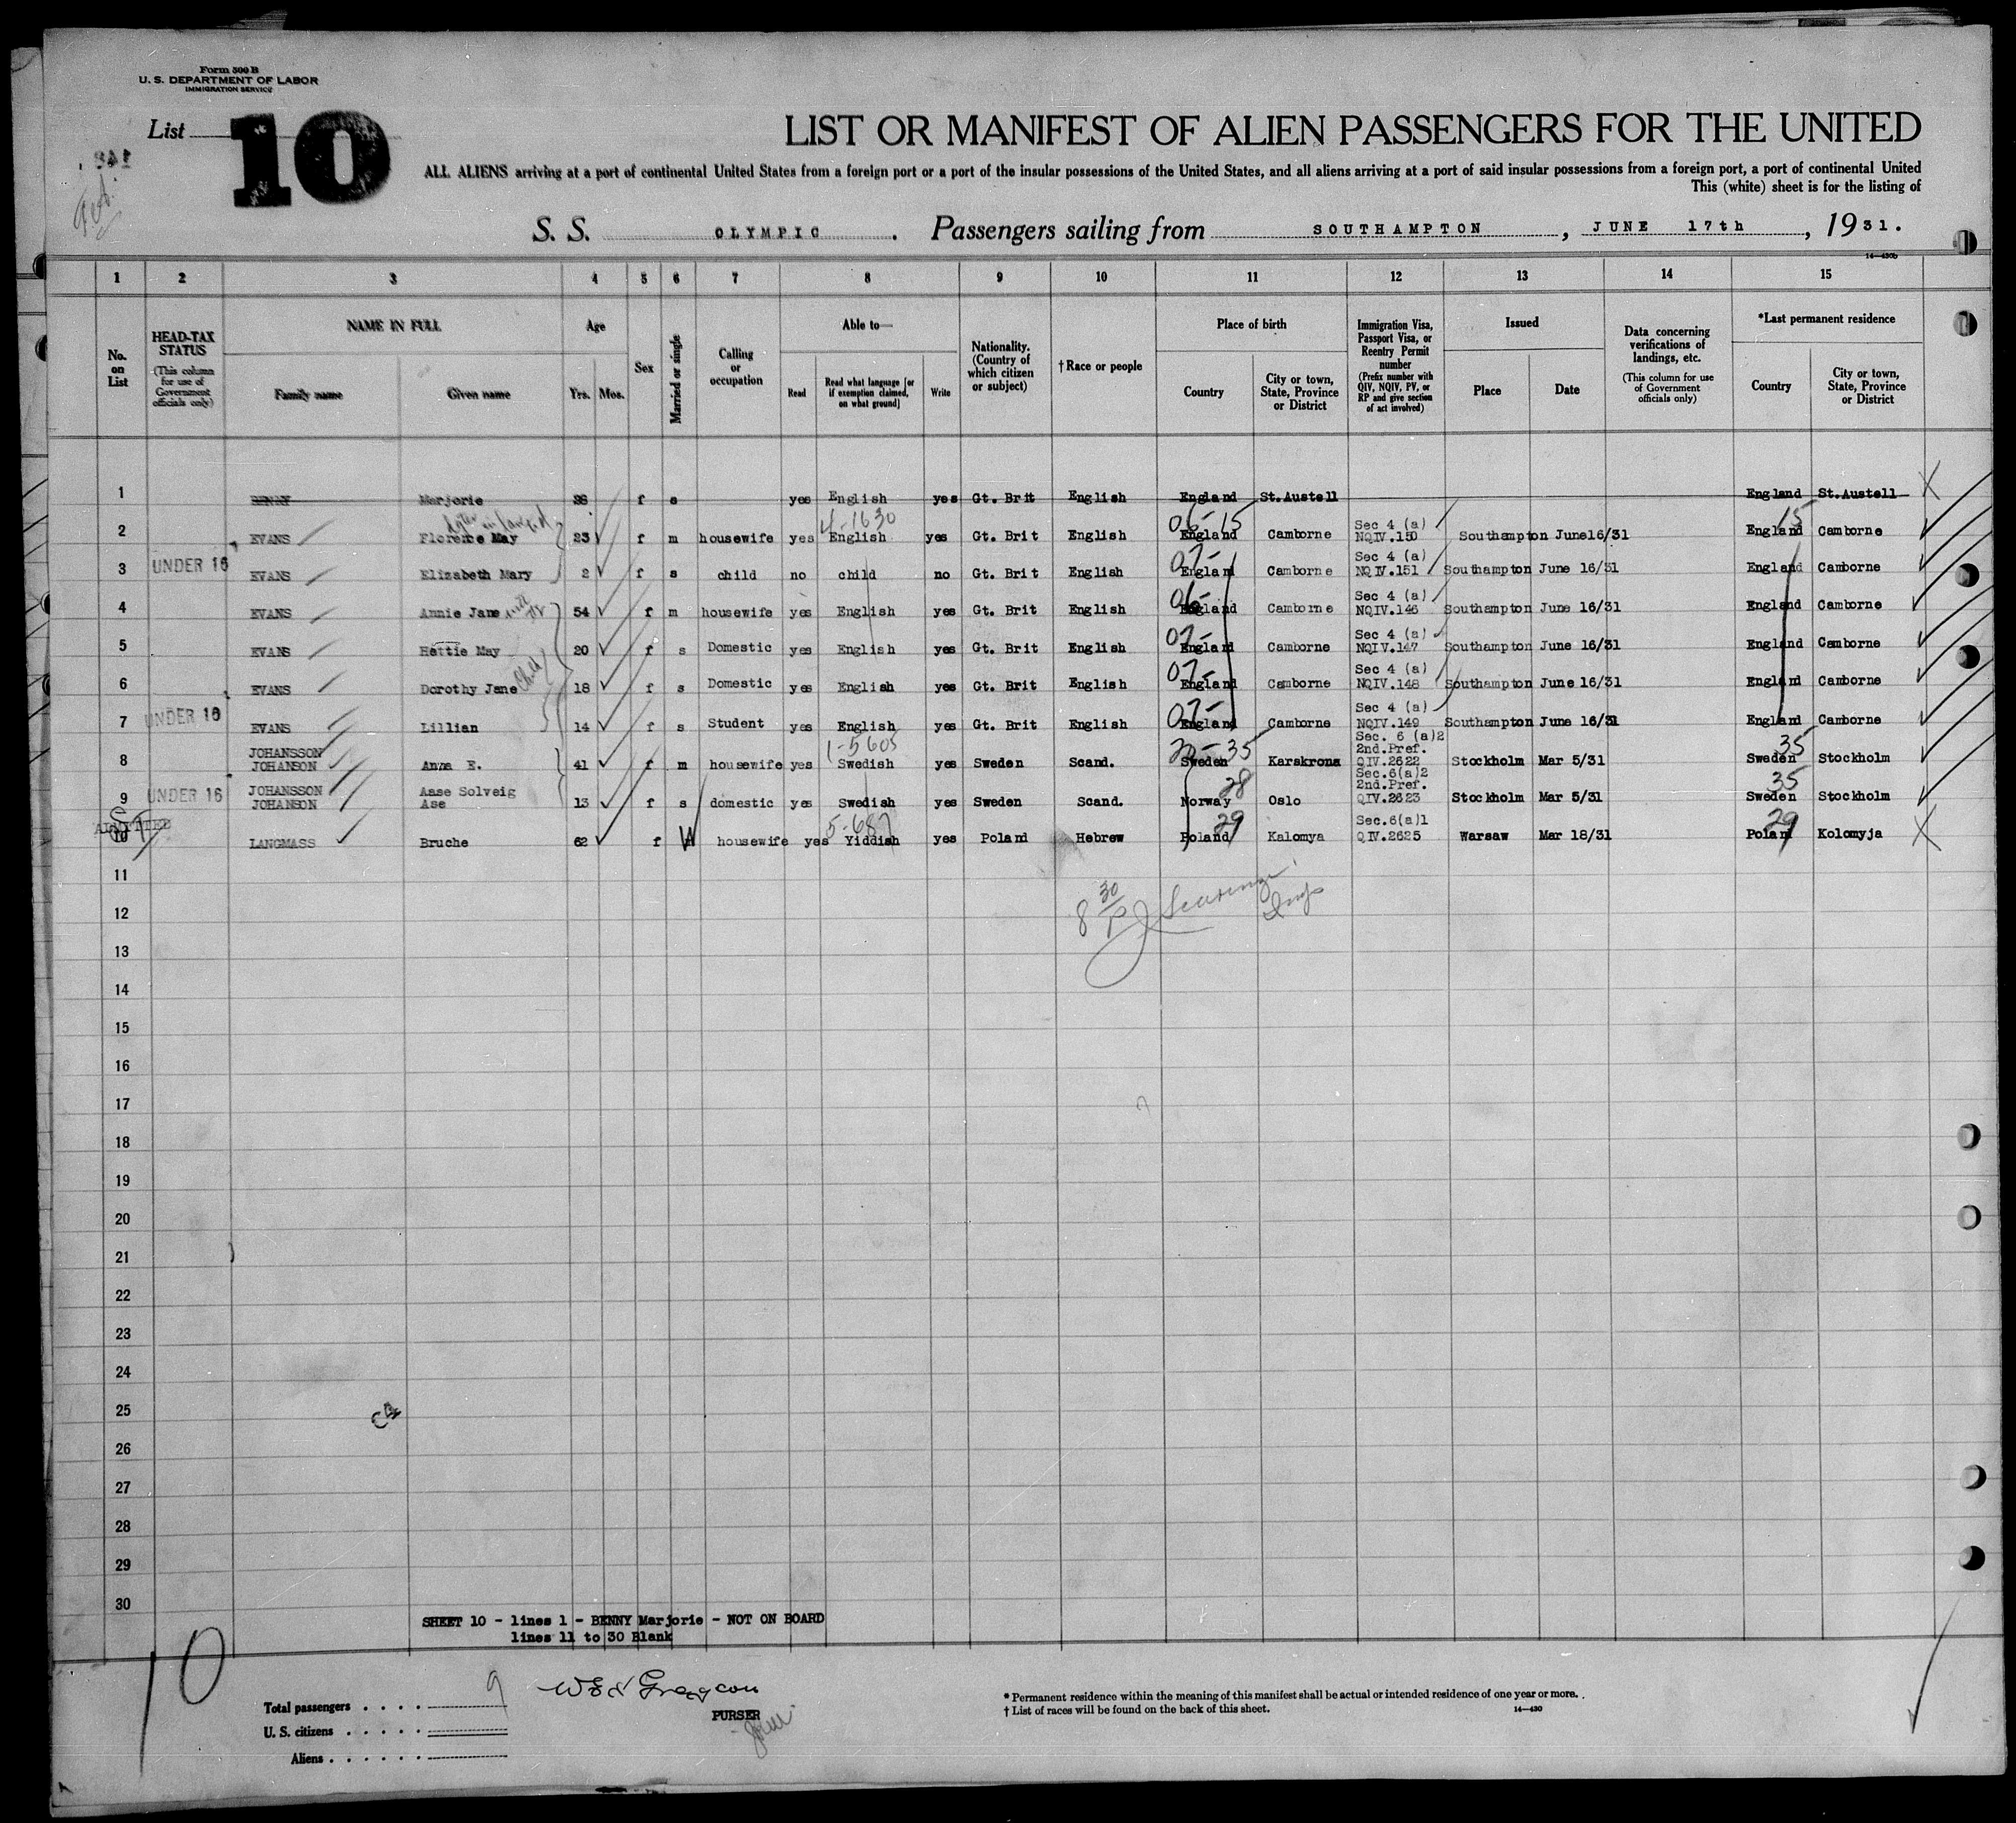 Form 500 B
U. S. DEPARTMENT OF LABOR
IMMIGRATION SERVICE
List 10
LIST OR MANIFEST OF ALIEN PASSENGERS FOR THE UNITED
ALL ALIENS arriving at a port of continental United States from a foreign port or a port of the insular possessions of the United States, and all aliens arriving at a port of said insular possessions from a foreign port, a port of continental United
This (white) sheet is for the listing of
S. S. OLYMPIC. Passengers sailing from SOUTHAMPTON, JUNE 17th, 1931.
14—430b
1 2 3 4 5 6 7 8 9 10 11 12 13 14 15
No. on List
HEAD-TAX STATUS (This column for use of Government officials only)
NAME IN FULL
Family name Given name
Age
Yrs. Mos.
Sex
Married or single
Calling or occupation
Able to—
Read
Read what language [or if exemption claimed, on what ground]
Write
Nationality. (Country of which citizen or subject)
† Race or people
Place of birth
Country
City or town, State, Province or District
Immigration Visa, Passport Visa, or Reentry Permit number (Prefix number with QIV, NQIV, PV, or RP and give section of act involved)
Issued
Place Date
Data concerning verifications of landings, etc. (This column for use of Government officials only)
*Last permanent residence
Country
City or town, State, Province or District
1 BENNY Marjorie 38 f s yes English yes Gt. Brit English England St.Austell England St.Austell X
4-1630 06-15 Sec 4 (a) 15
2 EVANS Florence May 23 f m housewife yes English yes Gt. Brit English England Camborne NQIV.150 Southampton June16/31 England Camborne
07- Sec 4 (a)
3 UNDER 16 EVANS Elizabeth Mary 2 f s child no child no Gt. Brit English England Camborne NQIV.151 Southampton June 16/31 England Camborne
06- Sec 4 (a)
4 EVANS Annie Jane 54 f m housewife yes English yes Gt. Brit English England Camborne NQIV.146 Southampton June 16/31 England Camborne
07- Sec 4 (a)
5 EVANS Hettie May 20 f s Domestic yes English yes Gt. Brit English England Camborne NQIV.147 Southampton June 16/31 England Camborne
07- Sec 4 (a)
6 EVANS Dorothy Jane 18 f s Domestic yes English yes Gt. Brit English England Camborne NQIV.148 Southampton June 16/31 England Camborne
07- Sec 4 (a)
7 UNDER 16 EVANS Lillian 14 f s Student yes English yes Gt. Brit English England Camborne NQIV.149 Southampton June 16/31 England Camborne
1-5605 35 Sec. 6 (a)2 35
JOHANSSON 2nd.Pref.
8 JOHANSON Anna E. 41 f m housewife yes Swedish yes Sweden Scand. Sweden Karskrona QIV.2622 Stockholm Mar 5/31 Sweden Stockholm
28 Sec.6(a)2 35
JOHANSSON Aase Solveig 2nd.Pref.
9 UNDER 16 JOHANSON Ase 13 f s domestic yes Swedish yes Sweden Scand. Norway Oslo QIV.2623 Stockholm Mar 5/31 Sweden Stockholm
ADMITTED 5-687 29 Sec.6(a)1 29
10 LANGMASS Bruche 62 f W housewife yes Yiddish yes Poland Hebrew Poland Kalomya QIV.2625 Warsaw Mar 18/31 Poland Kolomyja X
11
12
13
14
15
16
17
18
19
20
21
22
23
24
25
26
27
28
29
30
SHEET 10 - lines 1 - BENNY Marjorie - NOT ON BOARD
lines 11 to 30 Blank
10
Total passengers . . . . 9
U. S. citizens . . . . .
Aliens . . . . . .
PURSER
* Permanent residence within the meaning of this manifest shall be actual or intended residence of one year or more.
† List of races will be found on the back of this sheet.
14—430